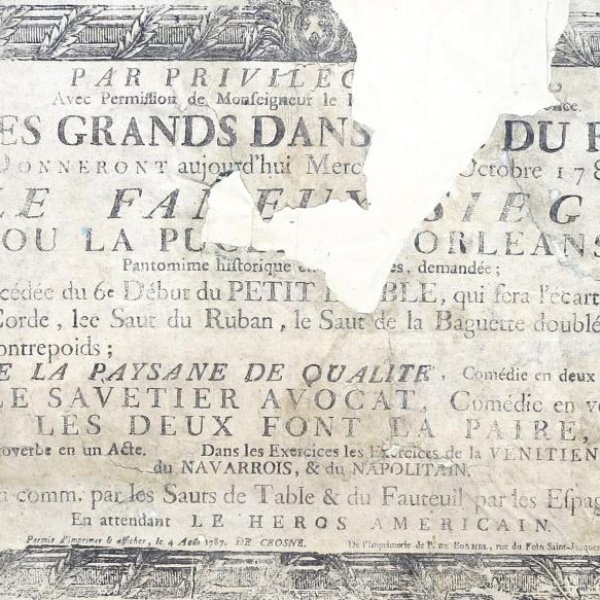 PAR PRIVILEG
Avec Permission de Monseigneur le
ES GRANDS DANS DU R
ONNERONT aujourd'hui Merc Octobre 178
LE FAMEUX SIEG
OU LA PUC ORLEANS
Pantomime historique en es, demandée;
cédée du 6e Début du PETIT DIABLE, qui fera l'écart
Corde, lee Saut du Ruban, le Saut de la Baguette doublé
ontrepoids;
E LA PAYSANE DE QUALITE, Comédie en deux
LE SAVETIER AVOCAT, Comédie en v
LES DEUX FONT LA PAIRE,
roverbe en un Acte. Dans les Exercices les Exercices de la VENITIEN
du NAVARROIS, & du NAPOLITAIN.
comm. par les Sauts de Table & du Fauteuil par les Espag
En attendant LE HEROS AMERICAIN.
Permis d'imprimer & afficher, le 4 Août 1787. DE CROSNE. De l'Imprimerie de P. DE LORMEL, rue du Foin Saint-Jacques